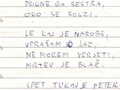 DVIGNE GA SESTRA,
OKO SE SOLZI.
LE KAJ JE NAROBE,
VPRAŠAM JAZ,
NE MOREM VERJETI,
MIŠTEV JE BLAČ.
SPET TUKAJ JE PETER